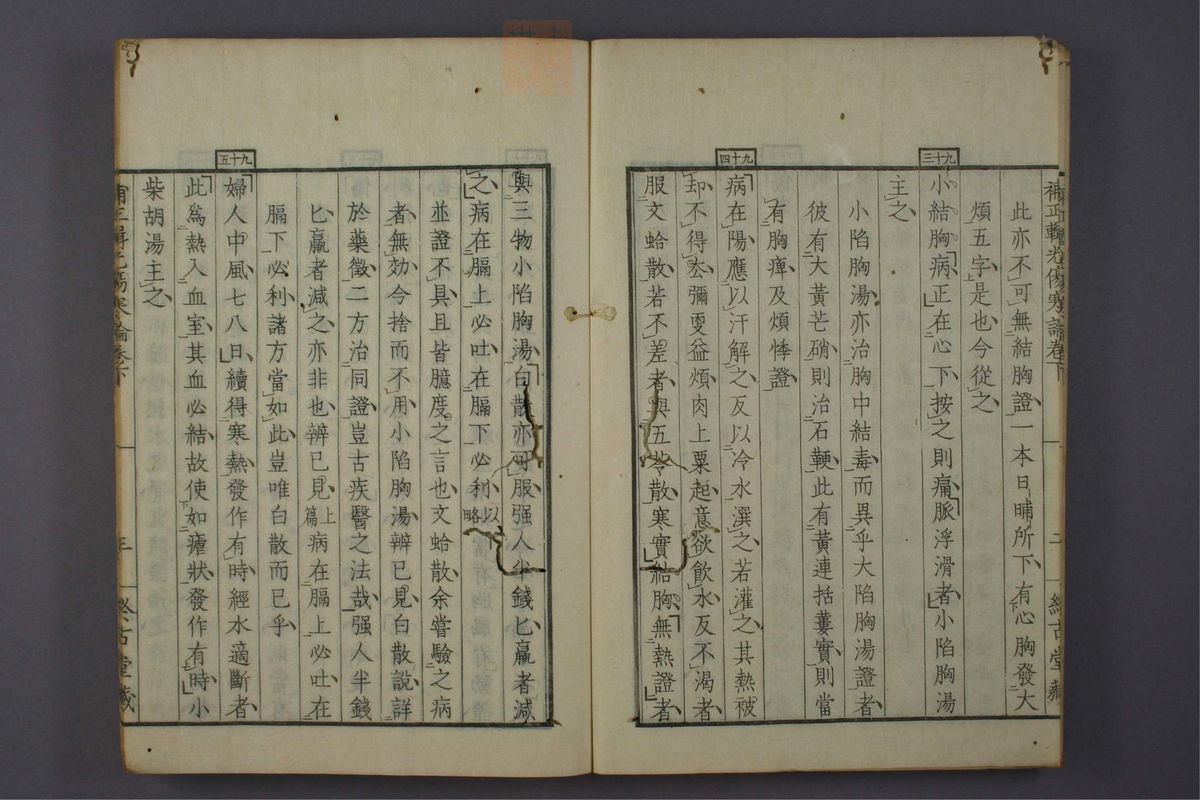 補正輯光傷寒論卷下
二
此亦不可無結胸證一本日晡所下有心胸發大
煩五字是也今從之
九十三
小結胸病正在心下按之則痛脈浮滑者小陷胸湯
主之
小陷胸湯亦治胸中結毒而異乎大陷胸湯證者
彼有大黃芒硝則治石鞕此有黃連括蔞實則當
有胸痺及煩悸證
九十四
病在陽應以汗解之反以冷水潠之若灌之其熱被
却不得去彌更益煩肉上粟起意欲飮水反不渴者
服文蛤散若不差者與五苓散寒實結胸無熱證者
與三物小陷胸湯白散亦可服强人半錢匕羸者減
之病在膈上必吐在膈下必利以略
並證不具且皆臆度之言也文蛤散余嘗驗之病
者無効今捨而不用小陷胸湯辨已見白散說詳
於藥徵二方治同證豈古疾醫之法哉强人半錢
匕羸者減之亦非也辨已見上篇病在膈上必吐在
膈下必利諸方當如此豈唯白散而已乎
九十五
婦人中風七八日續得寒熱發作有時經水適斷者
此爲熱入血室其血必結故使如瘧狀發作有時小
柴胡湯主之